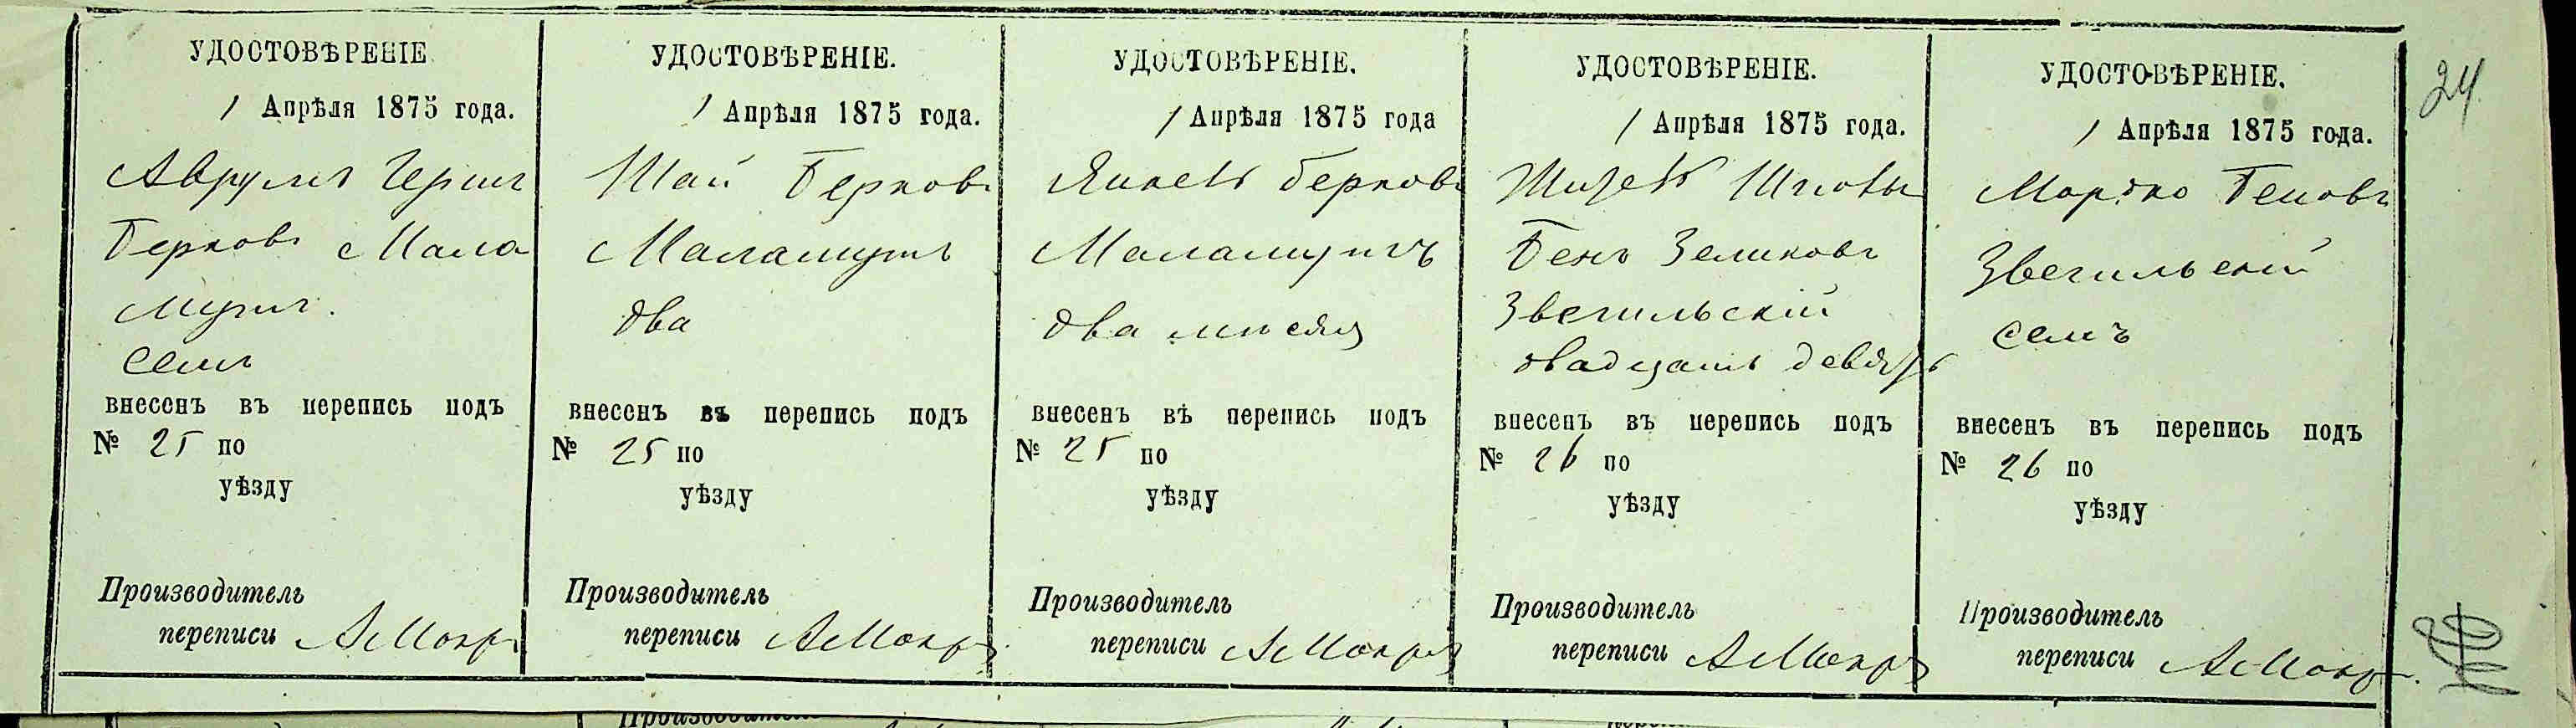 24
УДОСТОВѢРЕНІЕ
1 Апрѣля 1875 года.
Аврумъ Герш
Берковъ Мала
мутъ.
семь
внесенъ въ перепись подъ
№ 25 по
уѣзду
Производитель
переписи АМокр
УДОСТОВѢРЕНІЕ.
1 Апрѣля 1875 года.
Шай Берковъ
Маламутъ
два
внесенъ въ перепись подъ
№ 25 по
уѣзду
Производитель
переписи АМокр
УДОСТОВѢРЕНІЕ.
1 Апрѣля 1875 года
Янкель Берковъ
Маламутъ
два
внесенъ вѣ перепись подъ
№ 25 по
уѣзду
Производитель
переписи АМокр
УДОСТОВѢРЕНІЕ.
1 Апрѣля 1875 года.
Бенъ Зеликовъ
Звегильскій
двадцать девять
внесенъ въ перепись подъ
№ 26 по
уѣзду
Производитель
переписи АМокр
УДОСТОВѢРЕНІЕ.
1 Апрѣля 1875 года.
Мордко Беновъ
Звегильскій
семъ
внесенъ въ перепись подъ
№ 26 по
уѣзду
Производитель
переписи АМокр